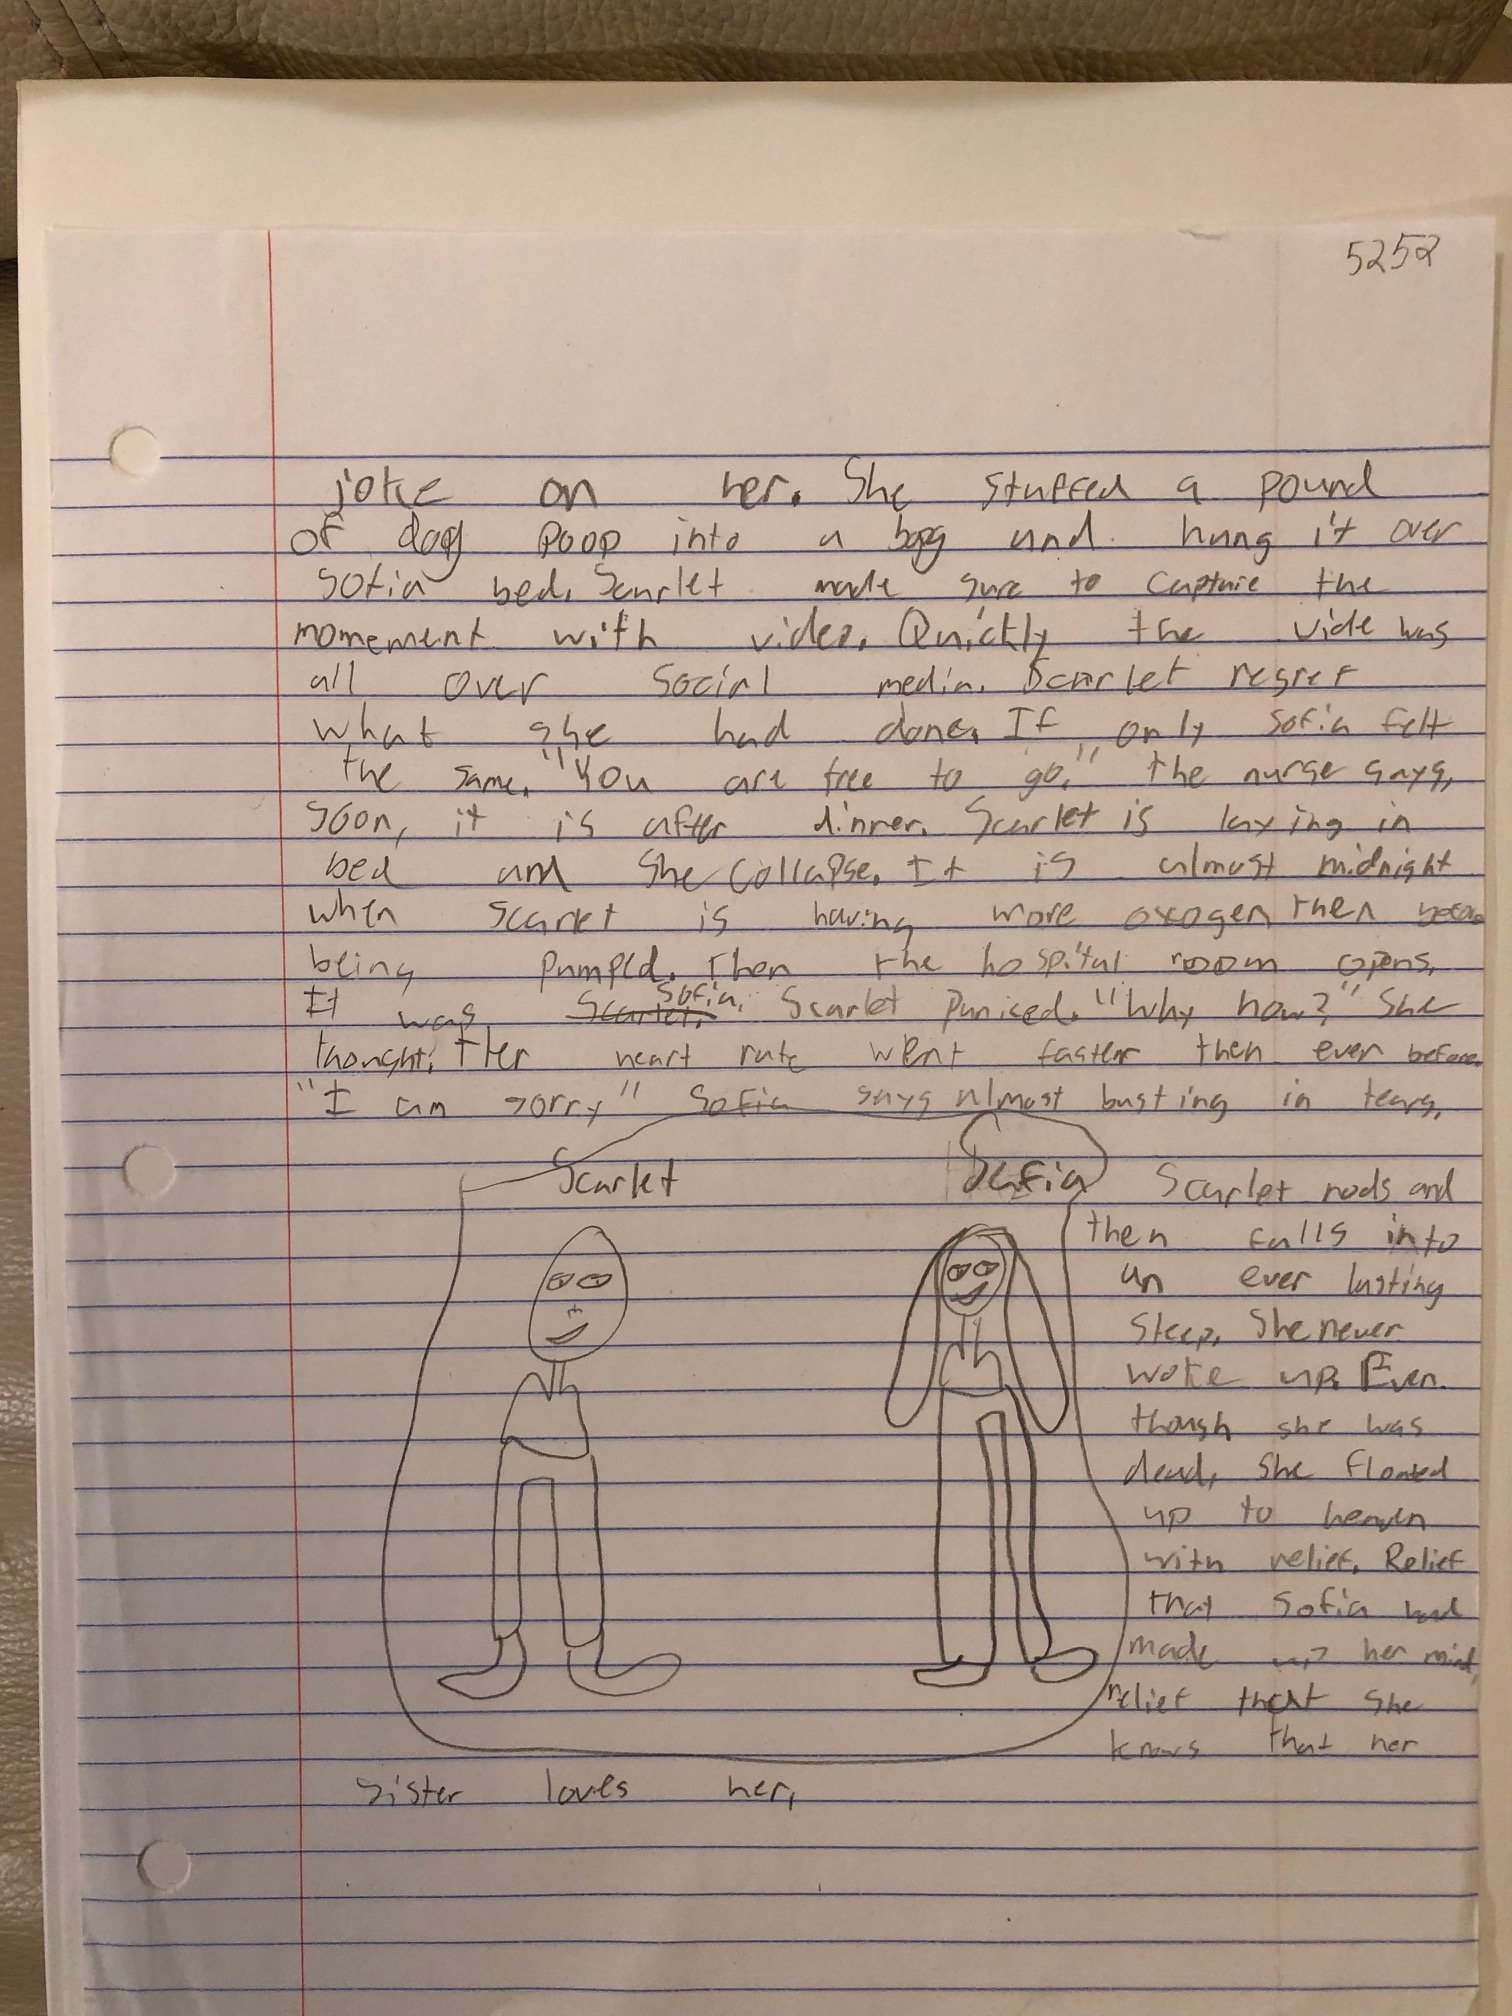 5252
joke on her. She stuffed a pound
of dog poop into a bag and hung it over
Sofia bed. Scarlet made sure to capture the
momement with video. Quickly the vide was
all over social media. Scarlet regret
what she had done. If only Sofia felt
the same. "You are free to go." the nurse says.
Soon, it is after dinner. Scarlet is laying in
bed and she collapse. It is almost midnight
when Scarlet is having more oxogen then before
being pumped. Then the hospital room opens.
It was Scarlet. Sofia. Scarlet paniced. "Why now?" She
thought. Her heart rate went faster then ever before.
"I am sorry" Sofia says almost busting in tears.
Scarlet
Sofia
Scarlet nods and
then falls into
an ever lasting
sleep. She never
woke up. Even
though she was
dead, she floated
up to heaven
with relief. Relief
that Sofia had
made up her mind,
relief that she
knows that her
sister loves her.